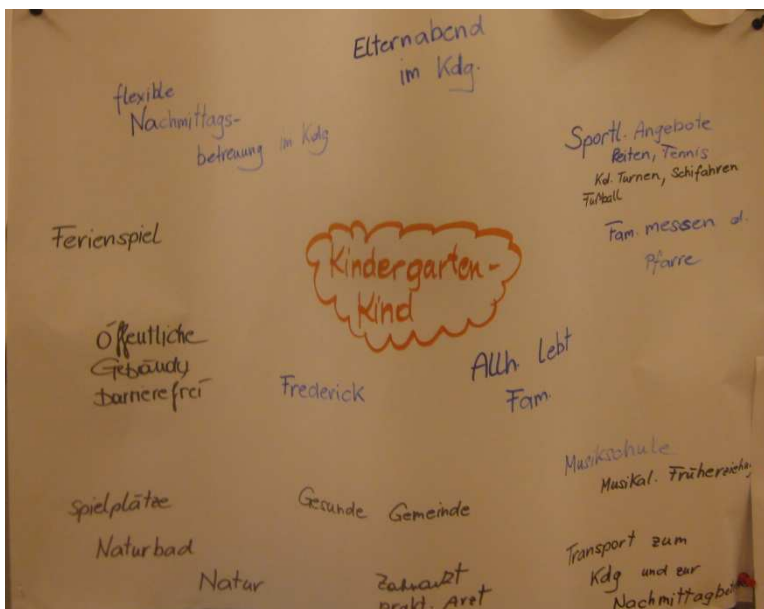 Elternabend
im Kdg.
flexible
Nachmittags-
betreuung im Kdg
Sportl. Angebote
Reiten, Tennis
Kd. Turnen, Schifahren
Fußball
Ferienspiel
Fam. messen d.
Pfarre
Kindergarten-
Kind
Öffentliche
Gebäude
barrierefrei
Frederick
Allh. lebt
Fam.
Musikschule
Musikal. Früherziehung
Spielplätze
Gesunde Gemeinde
Naturbad
Natur
Zahnarzt
prakt. Arzt
Transport zum
Kdg und zur